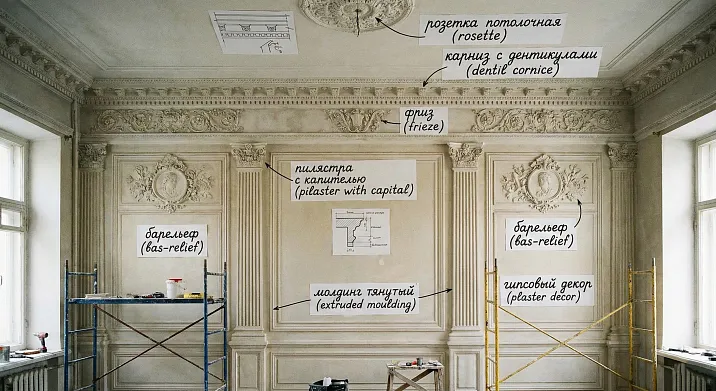 розетка потолочная
(rosette)
карниз с дентикулами
(dentil cornice)
фриз
(frieze)
пилястра
с капителью
(pilaster with capital)
барельеф
(bas-relief)
барельеф
(bas-relief)
молдинг тянутый
(extruded moulding)
гипсовый декор
(plaster decor)